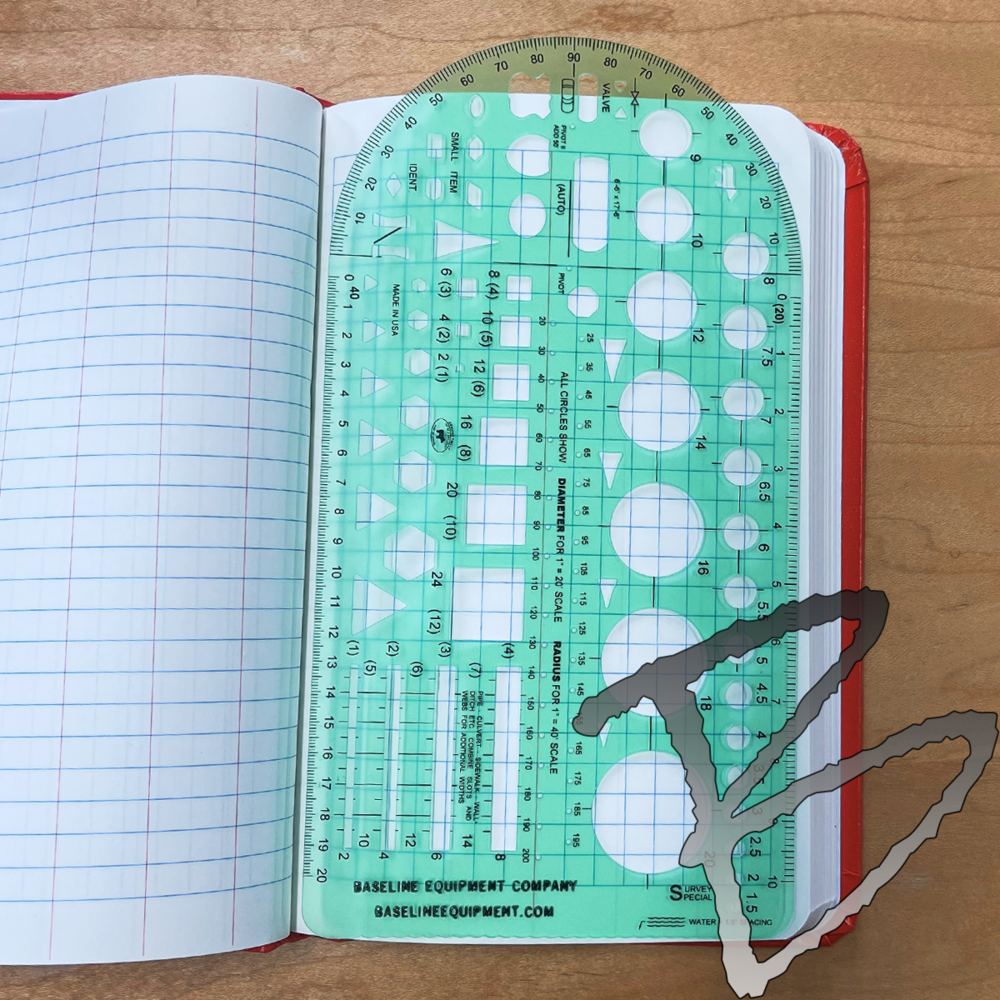 90
80
80
70
70
60
60
50
50
40
40
30
30
20
20
10
10
VALVE
PIVOT &
ADD 90°
SMALL ITEM
IDENT
(AUTO)
9
10
12
14
16
18
20
8
0 (20)
1
7.5
2
3
6.5
4
6
5
5.5
6
5
4.5
4
2.5
2
10
1.5
PIVOT
MADE IN USA
6 (3)
4 (2)
2 (1)
8 (4)
10 (5)
12 (6)
16 (8)
20 (10)
24 (12)
0 40
1
2
3
4
5
6
7
8
9
10
11
12
13
14
15
16
17
18
19
20
20
30
40
50
60
70
80
90
100
110
120
130
140
150
160
170
180
190
200
25
35
45
55
65
75
85
95
105
115
125
135
145
165
175
185
195
ALL CIRCLES SHOW DIAMETER FOR 1" = 20' SCALE RADIUS FOR 1" = 40' SCALE
(1)
(5)
(2)
(6)
(3)
(7)
(4)
PIPE - CULVERT - SIDEWALK - WALL
DITCH ETC. COMBINE SLOTS AND
WEBS FOR ADDITIONAL WIDTHS
2
10
4
12
6
14
8
BASELINE EQUIPMENT COMPANY
BASELINEEQUIPMENT.COM
SURVEY
SPECIAL
WATER